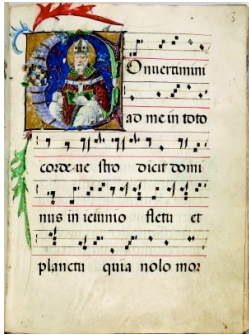 Onuertimini
ad me in toto
corde ue stro dicit domi
nus in ieiunio fletu et
planctu quia nolo mor